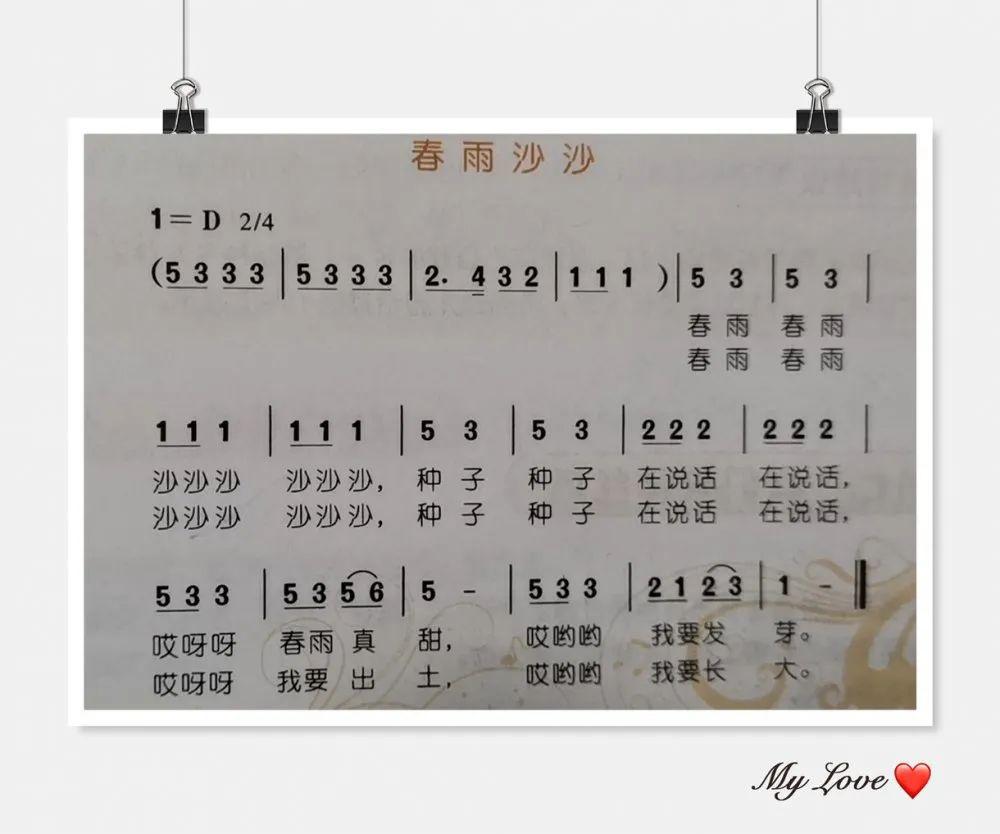 春雨沙沙
1=D 2/4
(5 3 3 3 | 5 3 3 3 | 2. 4 3 2 | 1 1 1 ) | 5 3 | 5 3 |
春 雨 春 雨
春 雨 春 雨
1 1 1 | 1 1 1 | 5 3 | 5 3 | 2 2 2 | 2 2 2 |
沙沙沙 沙沙沙, 种 子 种 子 在说话 在说话,
沙沙沙 沙沙沙, 种 子 种 子 在说话 在说话,
5 3 3 | 5 3 5 6 | 5 - | 5 3 3 | 2 1 2 3 | 1 - ‖
哎呀呀 春雨 真 甜, 哎哟哟 我要发 芽。
哎呀呀 我要 出 土, 哎哟哟 我要长 大。
My Love